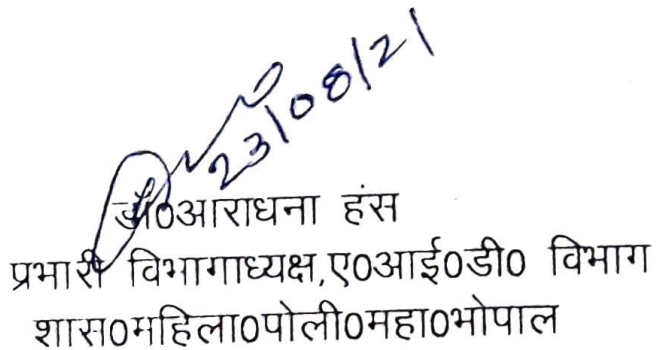 23/08/21
डॉ0आराधना हंस
प्रभारी विभागाध्यक्ष,ए0आई0डी0 विभाग
शास0महिला0पोली0महा0भोपाल